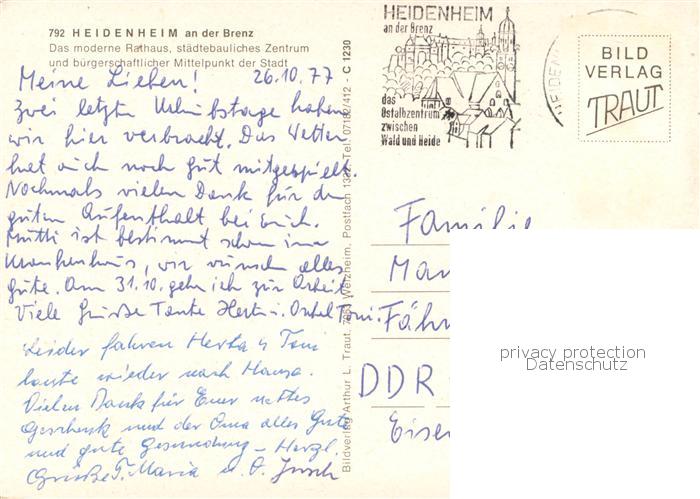 792 HEIDENHEIM an der Brenz
Das moderne Rathaus, städtebauliches Zentrum
und bürgerschaftlicher Mittelpunkt der Stadt
Meine Lieben! 26.10.77
Zwei letzte Urlaubstage haben
wir hier verbracht. Das Wetter
hat auch noch gut mitgespielt.
Nochmals vielen Dank für den
guten Aufenthalt bei Euch.
Mutti ist bestimmt schon im
Krankenhaus, wir wünschen alles
Gute. Am 31.10. geh ich zur Arbeit.
Viele Grüße Tante Herta u. Onkel Toni.
Leider fahren Herta u Toni
heute wieder nach Hause.
Vielen Dank für Euer nettes
Geschenk und der Oma alles Gute
und gute Gesundung – Herzl.
Grüße T. Maria u. O.
Bildverlag Arthur L. Traut, 7063 Welzheim, Postfach 1322, Tel. 07182/412 · C 1230
HEIDENHEIM
an der Brenz
das
Ostalbzentrum
zwischen
Wald und Heide
HEIDEN
BILD
VERLAG
TRAUT
Familie
Fähr
DDR
privacy protection
Datenschutz